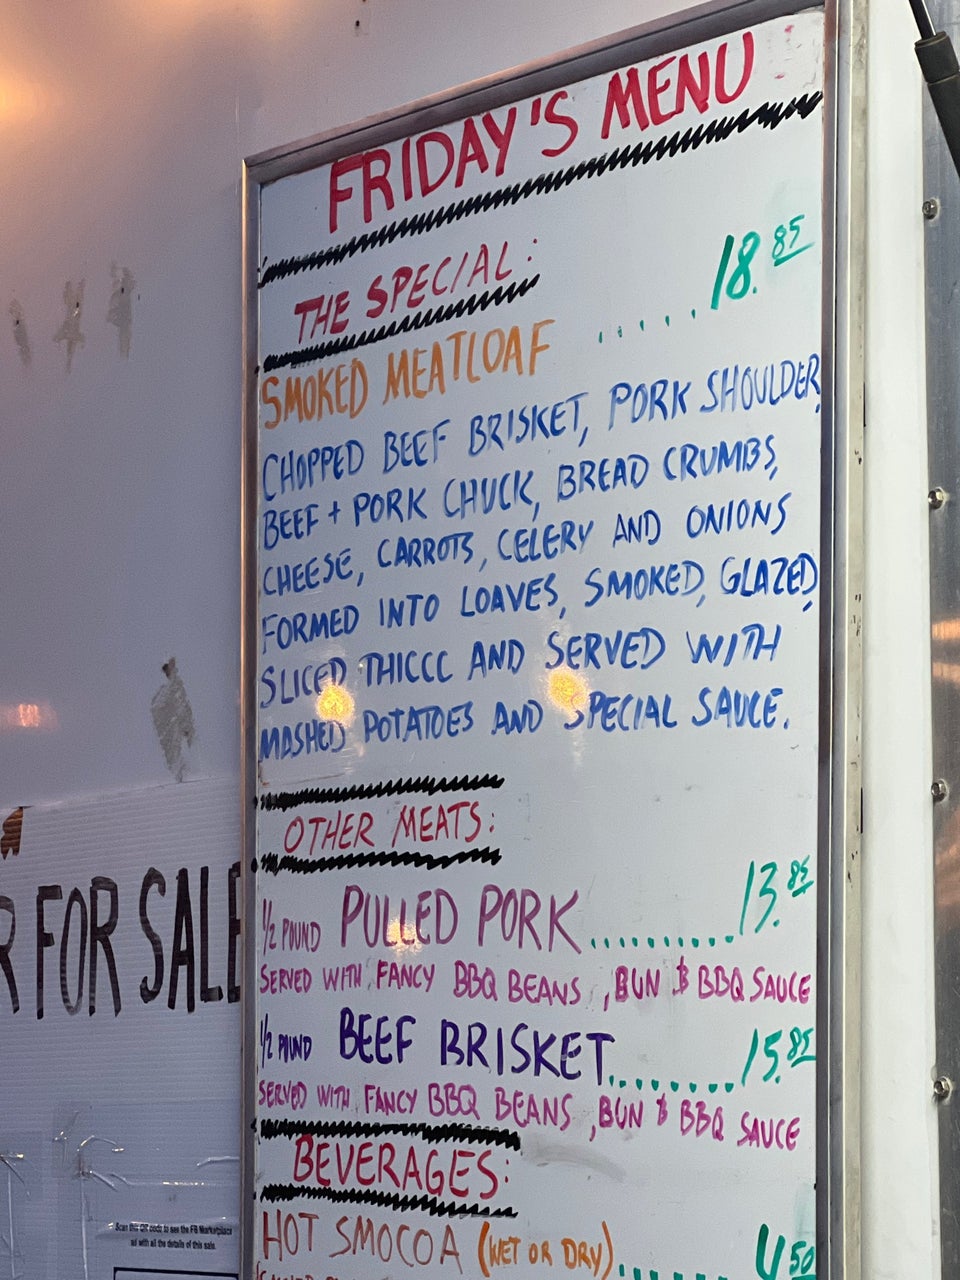 FRIDAY'S MENU
THE SPECIAL:
SMOKED MEATLOAF ..... 18.85
CHOPPED BEEF BRISKET, PORK SHOULDER,
BEEF + PORK CHUCK, BREAD CRUMBS,
CHEESE, CARROTS, CELERY AND ONIONS
FORMED INTO LOAVES, SMOKED, GLAZED,
SLICED THICCC AND SERVED WITH
MASHED POTATOES AND SPECIAL SAUCE.
OTHER MEATS:
1/2 POUND PULLED PORK.......... 13.85
SERVED WITH FANCY BBQ BEANS, BUN & BBQ SAUCE
1/2 POUND BEEF BRISKET........ 15.85
SERVED WITH FANCY BBQ BEANS, BUN & BBQ SAUCE
BEVERAGES:
HOT SMOCOA (WET OR DRY)..... 4.50
R FOR SALE
Scan this QR code to see the FB Marketplace
ad with all the details of this sale.